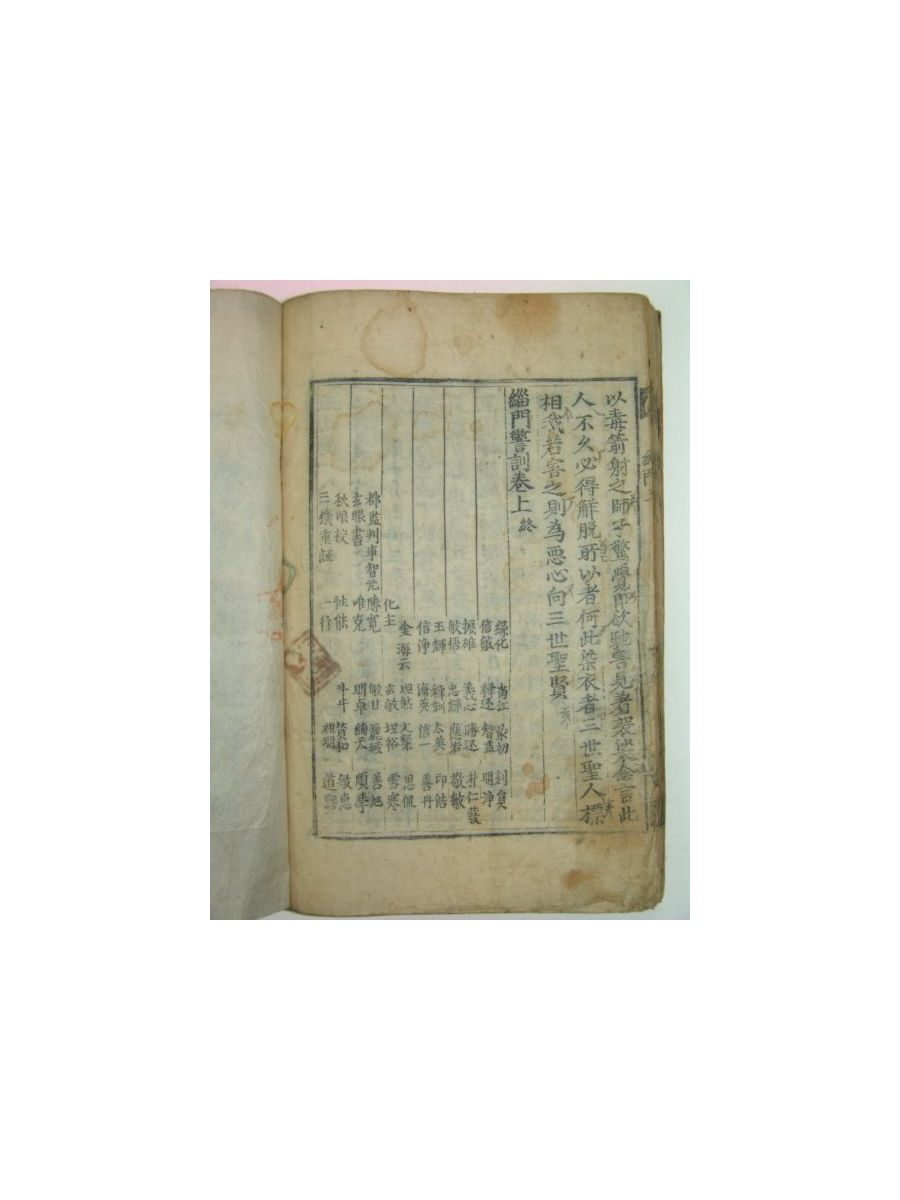 以毒箭射之師子驚覺即欲馳害見著袈裟念言此
人不久必得解脫所以者何此染衣者三世聖人標
相我若害之則為惡心向三世聖賢
緇門警訓卷上 終
緣化 尚江 最初 刻員
信敏 釋还 智畫 明淨
振雄 義心 勝还 朴仁發
敏悟 忠輝 應岩 敬敏
玉輝 釋訓 太英 印浩
信淨 海英 信一 善丹
金海云 坦然 文繫 思侃
化主 玄敏 埋裕 雪寒
都監判事智元 勝寬 敏甘 善旭
玄眼書 唯克 明卓 順季
秋眼校 性能 斗牛 贊和 敏惠
三機重証 一行 祖明 道熙